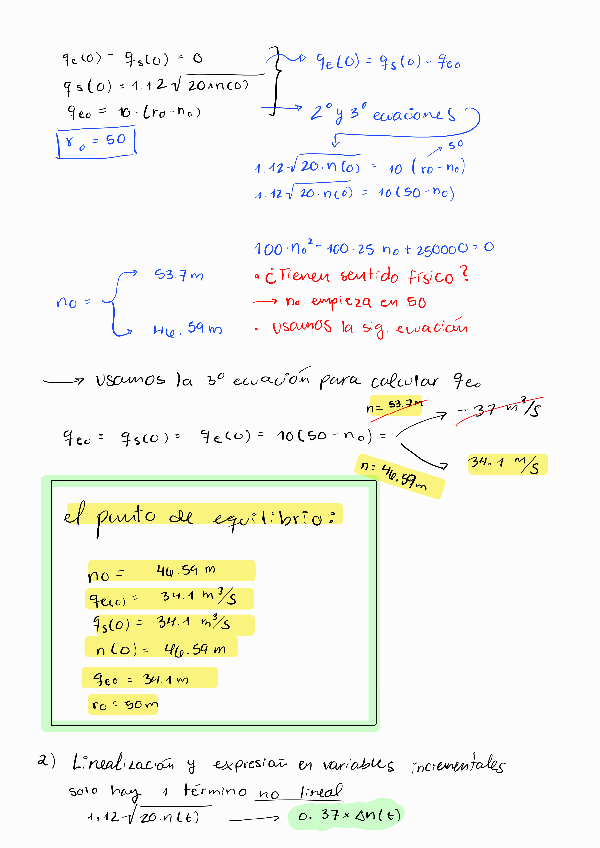 qe(0) - qs(0) = 0
qs(0) = 1.12 √20·n(0)
qeo = 10·(ro - no)
ro = 50
qe(0) = qs(0) = qeo
2º y 3º ecuaciones
50
1.12 √20·n(0) = 10 (ro - no)
1.12 √20·n(0) = 10 (50 - no)
100·no² - 100·25 no + 250000 = 0
no =
53.7 m
46.59 m
• ¿Tienen sentido físico?
→ no empieza en 50
• usamos la sig. ecuación
→ usamos la 3º ecuación para calcular qeo
qeo = qs(0) = qe(0) = 10(50 - no) =
n= 53.7m
- 37 m³/s
n= 46.59m
34.1 m/s
el punto de equilibrio:
no = 46.59 m
qe(0) = 34.1 m³/s
qs(0) = 34.1 m³/s
n(0) = 46.59 m
qeo = 34.1 m
ro = 50m
2) Linealización y expresión en variables incrementales
solo hay 1 término no lineal
1.12 √20.n(t) → 0.37 × Δn(t)